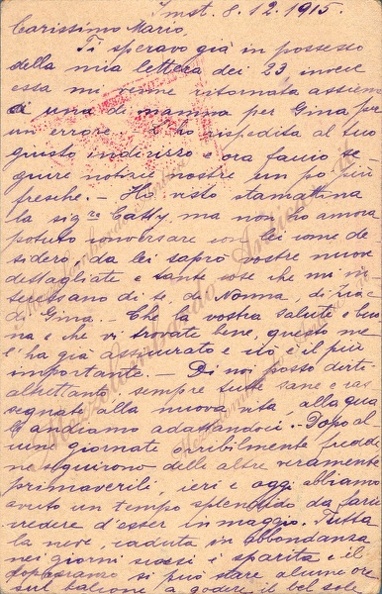 Imst. 8.12.1915.
Carissimo Mario,
Ti speravo già in possesso
della mia lettera dei 23, invece
essa mi venne ritornata assieme
a una di mamma per Gina per
un errore. L'ho rispedita al suo
giusto indirizzo e ora faccio se-
guire notizie nostre un po' più
fresche. - Ho visto stamattina
la sigra Catty, ma non ho ancora
potuto conversare con lei come de-
sidero, da lei saprò vostre nuove
dettagliate e tante cose che mi in-
teressano di te, di Nonna, di zia e
di Gina. - Che la vostra salute è buo-
na e che vi trovate bene, questo me
l'ha già assicurato e ciò, è il più
importante. - Di noi posso dirti
altrettanto, sempre tutte sane e ras-
segnate alla nuova vita, alla qua-
le andiamo adattandoci. - Dopo al-
cune giornate orribilmente fredde
ne seguirono delle altre veramente
primaverili, ieri e oggi abbiamo
avuto un tempo splendido da farci
credere d'esser in maggio. Tutta
la neve, caduta in abbondanza
nei giorni scorsi è sparita e il
dopopranzo si può stare alcune ore
sul balcone a godere il bel sole